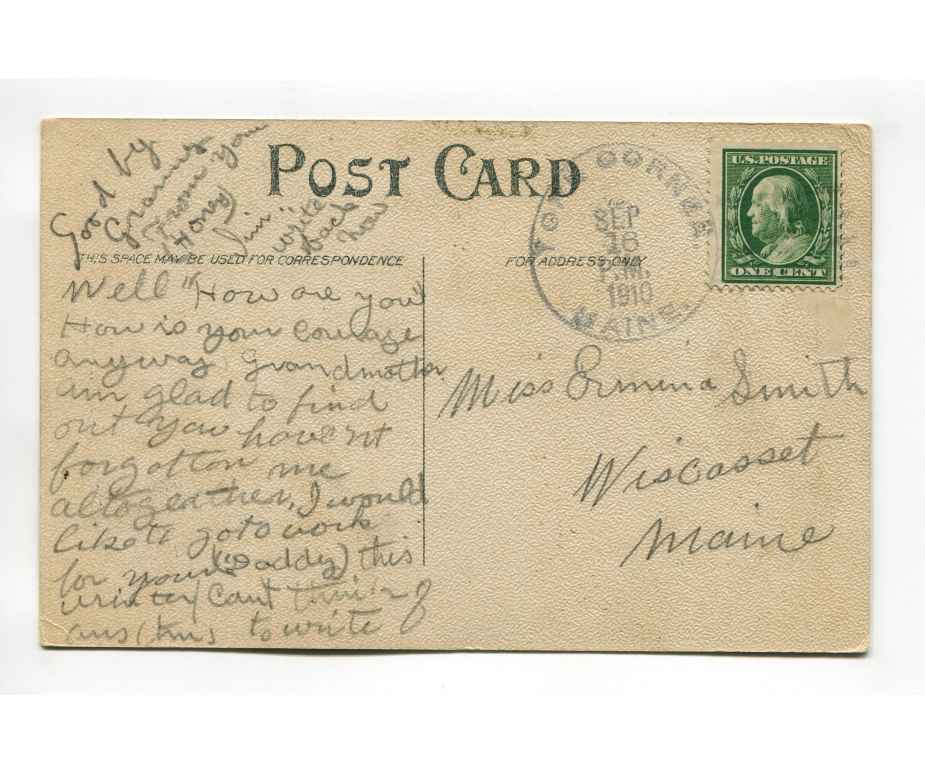 Good by
Granny
From your
Honey
Jim
write
back
now
POST CARD
THIS SPACE MAY BE USED FOR CORRESPONDENCE
FOR ADDRESS ONLY
CORNER
SEP
16
P.M.
1910
MAINE
U.S. POSTAGE
ONE CENT
Well "How are you"
How is your courage
anyway, Grandmother
um glad to find
out you have'nt
forgotton me
altogeather, I would
like to go to work
for your ("Daddy) this
winter, Cant think of
to write
Miss Ermina Smith
Wiscasset
Maine